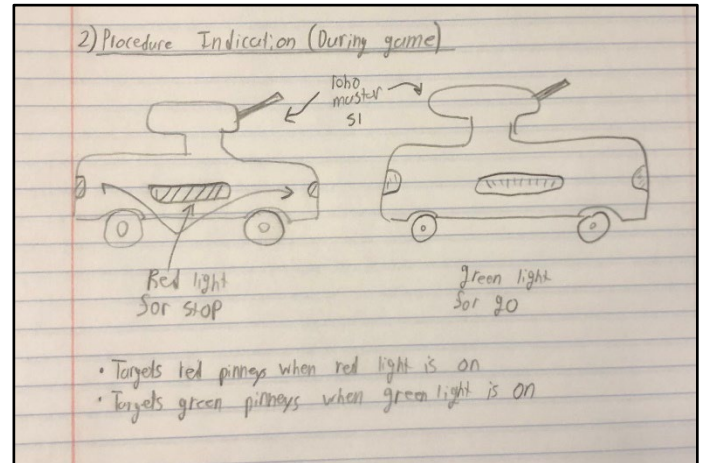 2) Procedure Indication (During game)
robo
master
S1
Red light
for stop
green light
for go
• Targets red pinneys when red light is on
• Targets green pinneys when green light is on